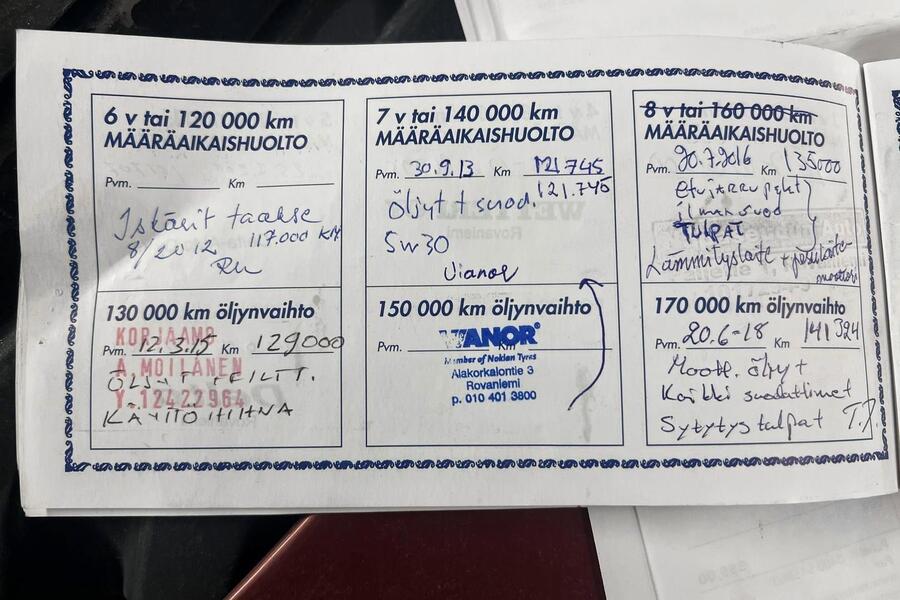 6 v tai 120 000 km
MÄÄRÄAIKAISHUOLTO
Pvm. Km
Iskärit taakse
8/2012 117.000 KM
7 v tai 140 000 km
MÄÄRÄAIKAISHUOLTO
Pvm. 30.9.13 Km 121 745
121.745
Öljyt + suod.
5w30
Vianor
8 v tai 160 000 km
MÄÄRÄAIKAISHUOLTO
Pvm. 20.7.2016 Km 135000
etujarrupalat
ilmansuod
TULPAT
Lämmityslaite + pesulaite-
moottori
130 000 km öljynvaihto
KORJAAMO
Pvm. 12.3.15 Km 129000
A. MOILANEN
ÖLJYT FEILTT.
Y.12422964
KÄYTTÖHIHNA
150 000 km öljynvaihto
VIANOR®
Pvm. Km
Member of Nokian Tyres
Alakorkalontie 3
Rovaniemi
p. 010 401 3800
170 000 km öljynvaihto
Pvm. 20.6-18 Km 141 324
Moott. öljyt
Kaikki suodattimet
Sytytystulpat